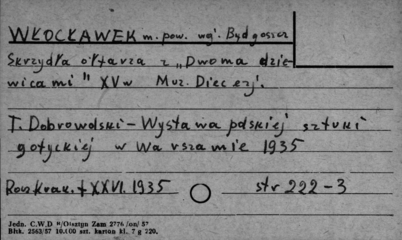 WŁOCŁAWEK m. pow. wg. Bydgoszcz
Skrzydła ołtarza z „Dwoma dzie-
wicami" XV w Muz. Diecezj.
T. Dobrowolski - Wystawa polskiej sztuki
gotyckiej w Warszawie 1935
Rocz Krak. t XXVI. 1935 str 222-3
Jedn. C.W.D. Olsztyn Zam 2776 /on/ 57
Błhk. 2563/57 10.000 szt. karton kl. 7 g 220.